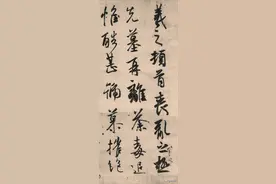 羲之頓首喪亂之極
先墓再離荼毒追
惟酷甚號慕摧絕